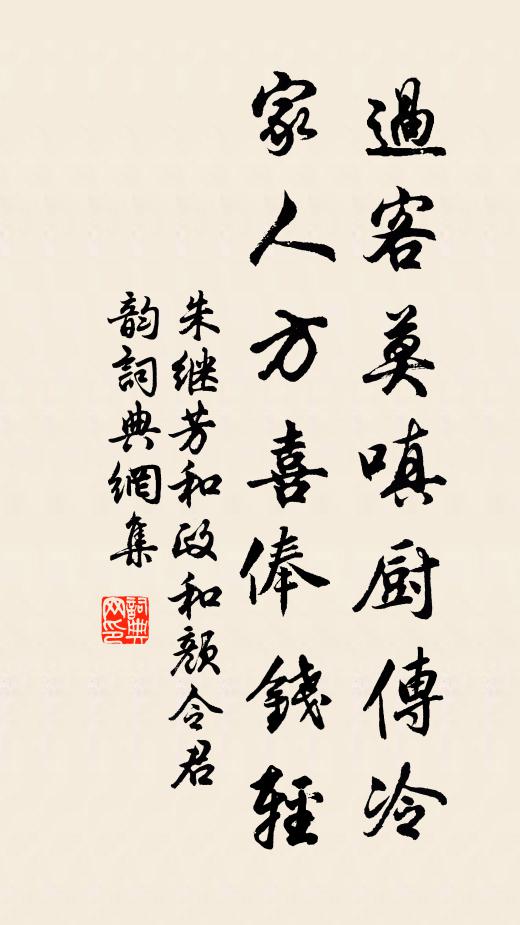 過客莫嗔厨傳冷
家人方喜俸錢輕
朱继芳和政和顏令君
韵詞典網集
詞典
网印